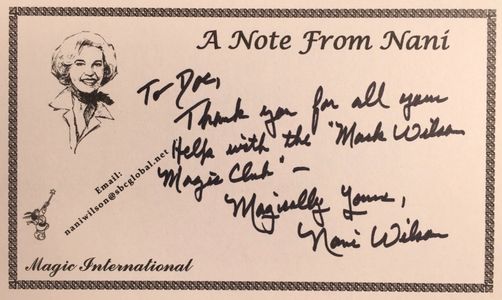 A Note From Nani
To Doc,
Thank you for all your
Help with the "Mark Wilson
Magic Club" –
Magically Yours,
Nani Wilson
Email:
naniwilson@sbcglobal.net
Magic International